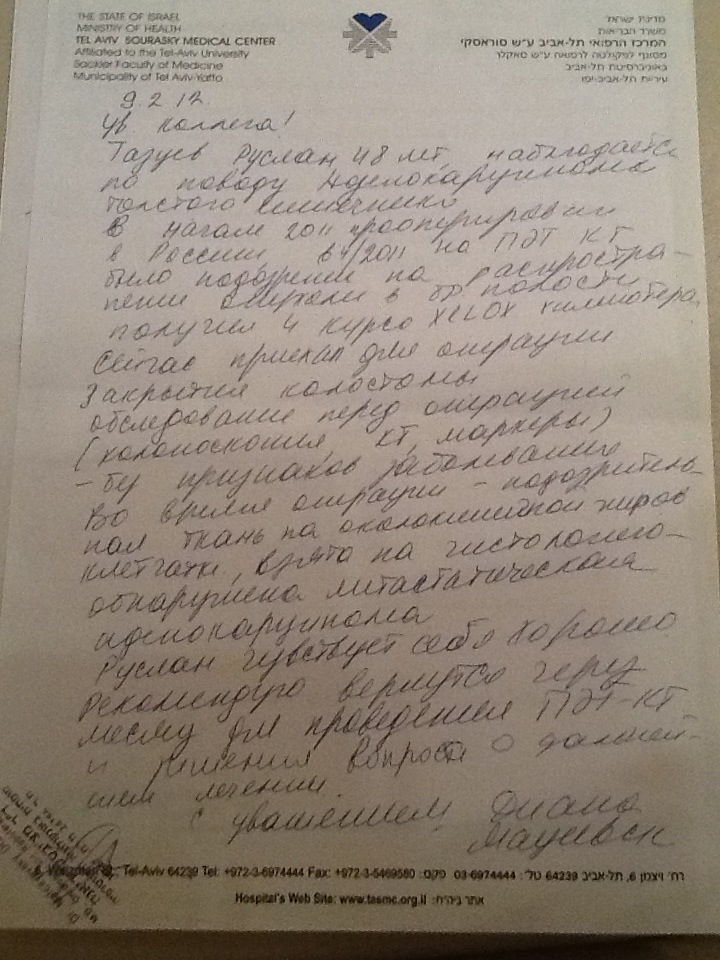 THE STATE OF ISRAEL
MINISTRY OF HEALTH
TEL AVIV SOURASKY MEDICAL CENTER
Affiliated to the Tel-Aviv University
Sackler Faculty of Medicine
Municipality of Tel Aviv-Yaffo
מדינת ישראל
משרד הבריאות
המרכז הרפואי תל-אביב ע"ש סוראסקי
מסונף לפקולטה לרפואה ע"ש סאקלר
באוניברסיטת תל-אביב
עיריית תל-אביב-יפו
9.2.12
Ув. коллега!
Тазуев Руслан 48 лет, наблюдается
по поводу Аделокарцинома
толстого кишечника
В начале 2011 прооперирован
в России, в 4/2011 на ПЭТ КТ
было подозрение на распростра-
нение опухоли в бр. полости
получил 4 курса XELOX химиотера
Сейчас приехал для операции
Закрытия колостомы
обследование перед операцией
(колоноскопия, КТ, маркеры)
- без признаков заболевание
Во время операции - подозритель-
ная ткань на околокишечной жиров
клетчатки, взято на гистологию -
обнаружена митастатическая
аденокарцинома
Руслан чувствует себя хорошо
Рекомендую вернутся через
месяц для проведения ПЭТ-КТ
и решения вопроса о дальней-
шем лечении.
с уважением, Диана
Мациевск
Tel-Aviv 64239 Tel: +972-3-6974444 Fax: +972-3-5469580 רח' ויצמן 6, תל-אביב 64239 טל': 03-6974444 פקס:
Hospital's Web Site: www.tasmc.org.il אתר ביה"ח: